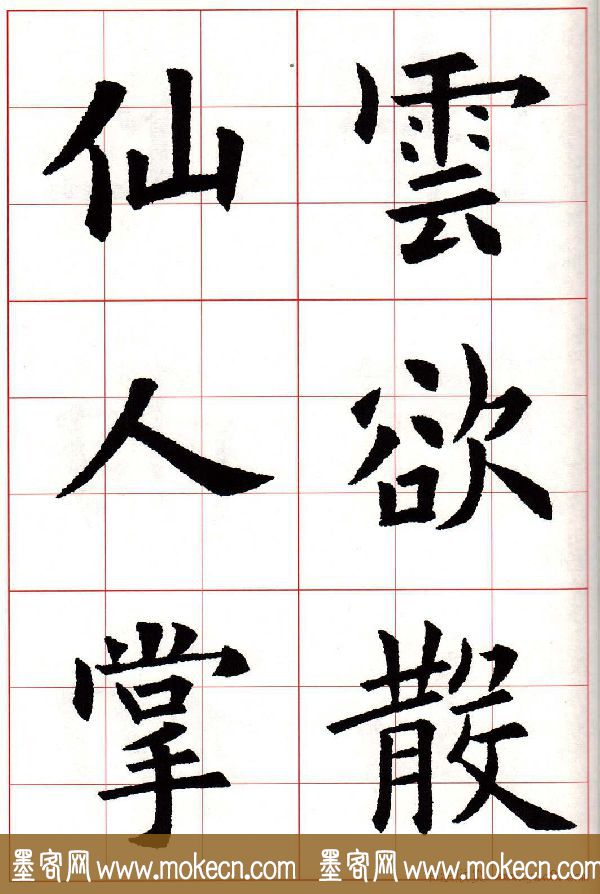 雲欲散
仙人掌
墨客网 www.mokecn.com 墨客网 www.mokecn.com